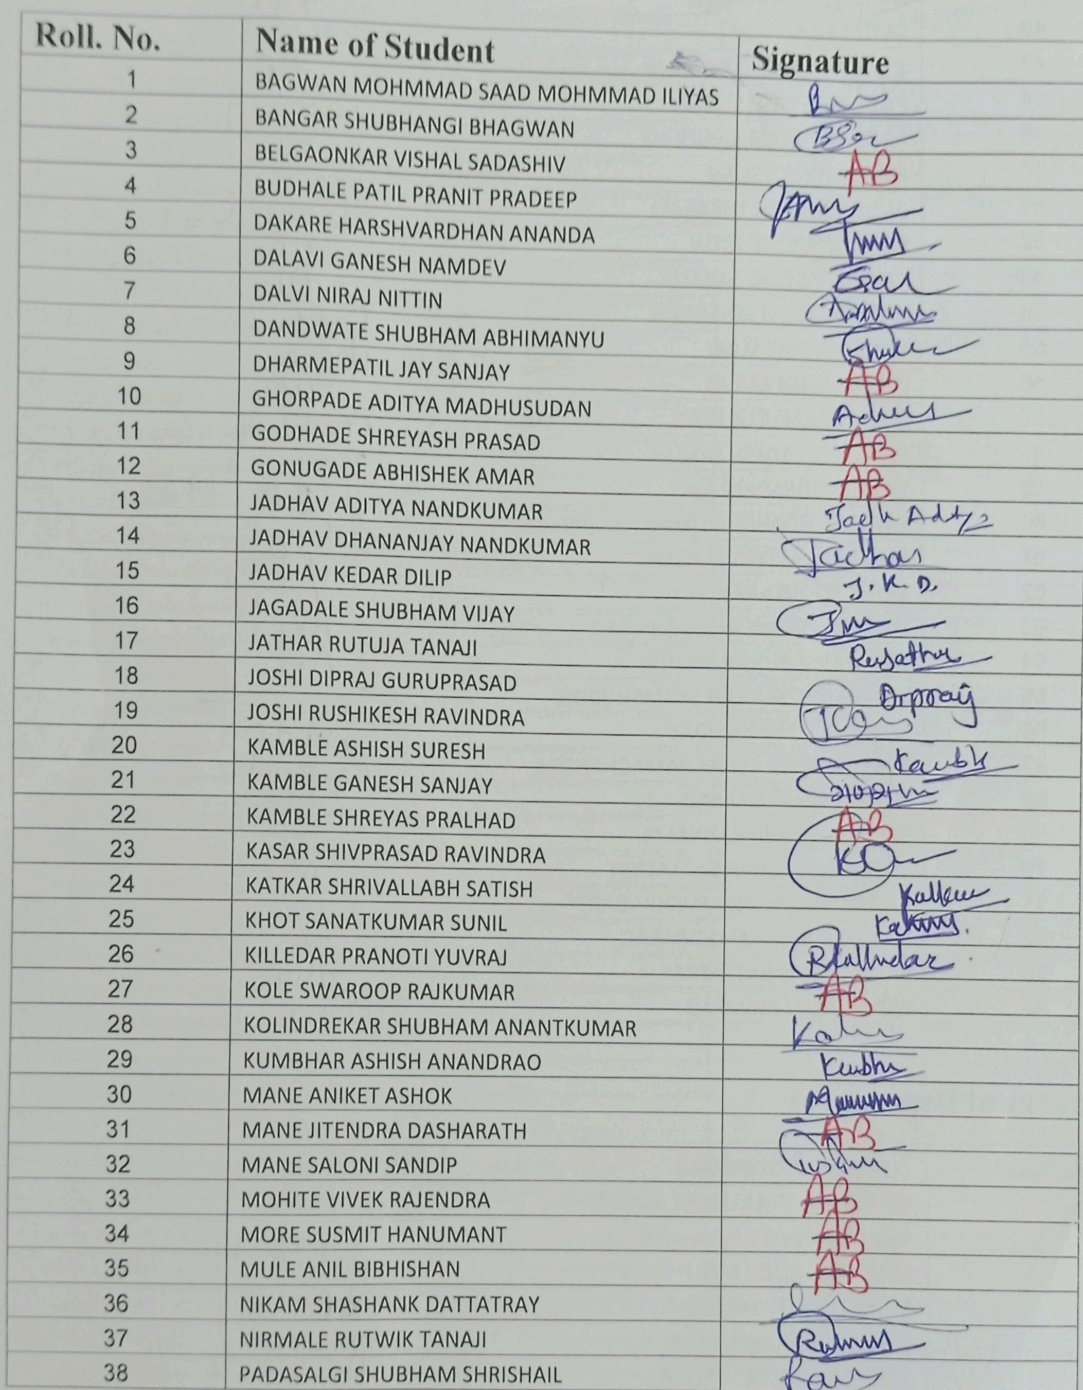 Roll. No. Name of Student Signature
1 BAGWAN MOHMMAD SAAD MOHMMAD ILIYAS
2 BANGAR SHUBHANGI BHAGWAN
3 BELGAONKAR VISHAL SADASHIV AB
4 BUDHALE PATIL PRANIT PRADEEP
5 DAKARE HARSHVARDHAN ANANDA
6 DALAVI GANESH NAMDEV
7 DALVI NIRAJ NITTIN
8 DANDWATE SHUBHAM ABHIMANYU
9 DHARMEPATIL JAY SANJAY AB
10 GHORPADE ADITYA MADHUSUDAN
11 GODHADE SHREYASH PRASAD AB
12 GONUGADE ABHISHEK AMAR AB
13 JADHAV ADITYA NANDKUMAR
14 JADHAV DHANANJAY NANDKUMAR
15 JADHAV KEDAR DILIP J.K.D.
16 JAGADALE SHUBHAM VIJAY
17 JATHAR RUTUJA TANAJI
18 JOSHI DIPRAJ GURUPRASAD
19 JOSHI RUSHIKESH RAVINDRA
20 KAMBLE ASHISH SURESH
21 KAMBLE GANESH SANJAY
22 KAMBLE SHREYAS PRALHAD AB
23 KASAR SHIVPRASAD RAVINDRA
24 KATKAR SHRIVALLABH SATISH
25 KHOT SANATKUMAR SUNIL
26 KILLEDAR PRANOTI YUVRAJ
27 KOLE SWAROOP RAJKUMAR AB
28 KOLINDREKAR SHUBHAM ANANTKUMAR
29 KUMBHAR ASHISH ANANDRAO
30 MANE ANIKET ASHOK
31 MANE JITENDRA DASHARATH AB
32 MANE SALONI SANDIP
33 MOHITE VIVEK RAJENDRA AB
34 MORE SUSMIT HANUMANT AB
35 MULE ANIL BIBHISHAN AB
36 NIKAM SHASHANK DATTATRAY
37 NIRMALE RUTWIK TANAJI
38 PADASALGI SHUBHAM SHRISHAIL